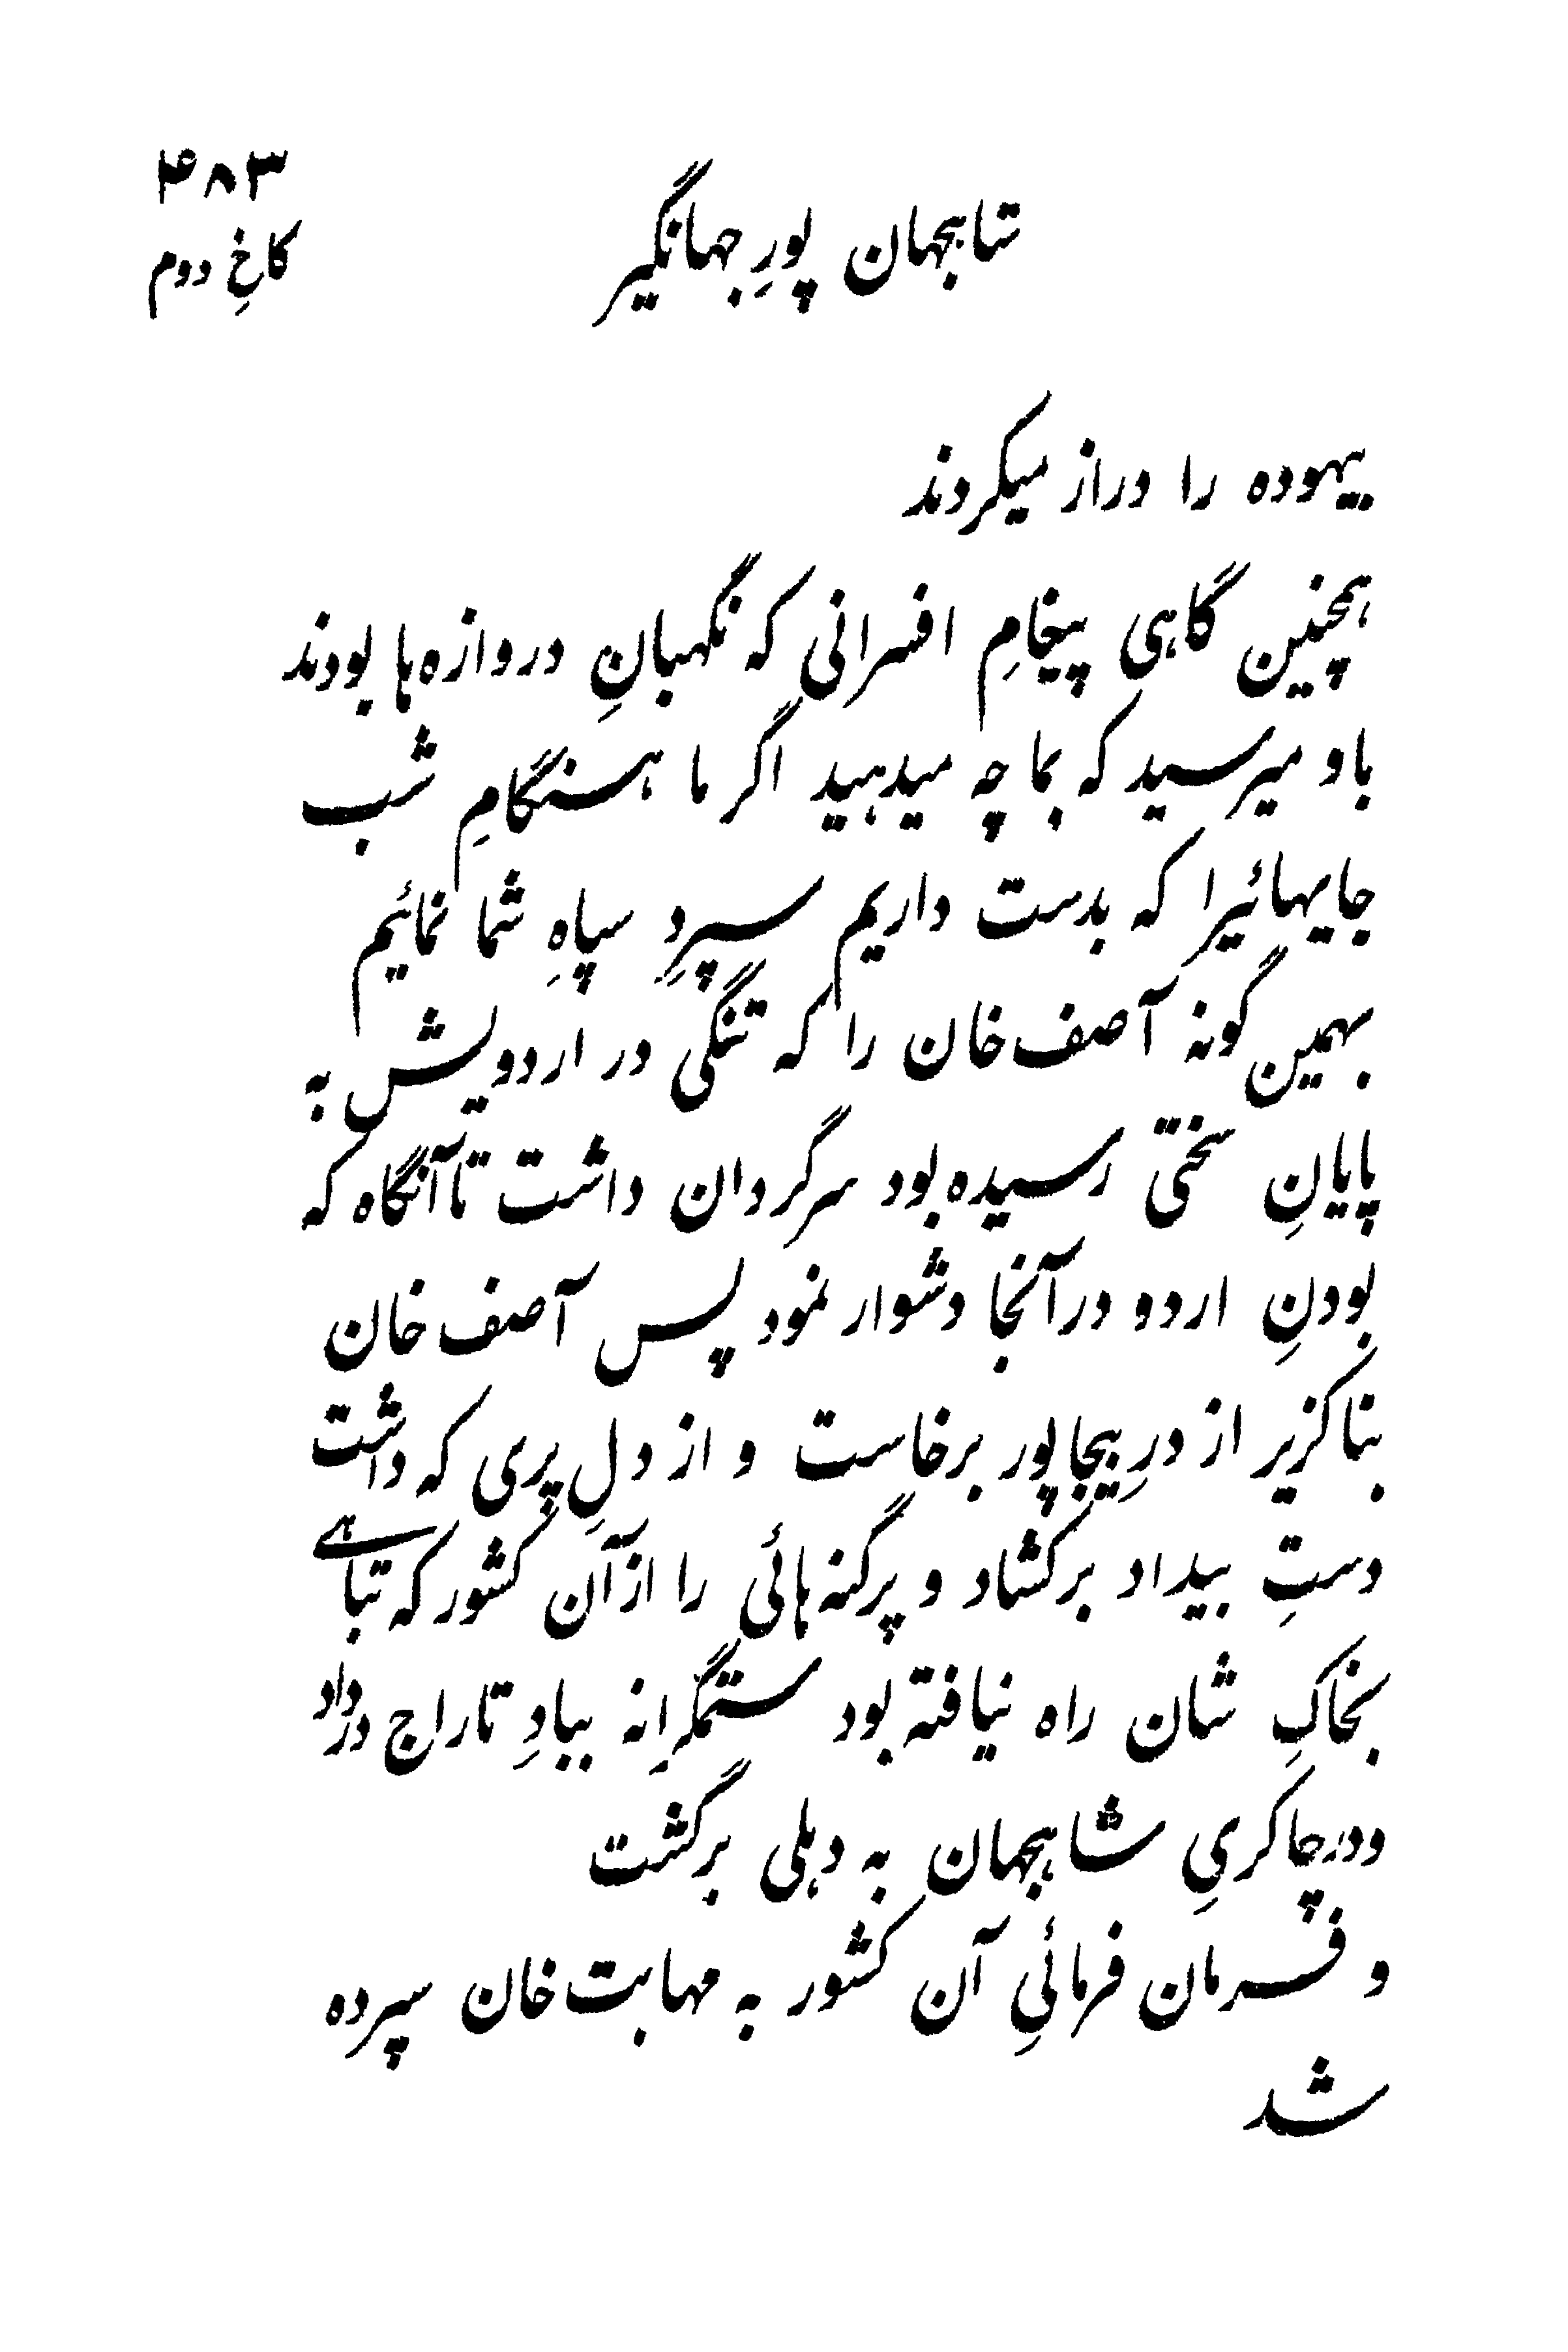 ۴۸۳
شاهجهان پورِ جهانگیر
کاخِ دوم
بیهوده را دراز میکردند
همچنین گاهی پیغامِ افسرانی که نگهبانِ دروازه‌ها بودند
باو میرسید که بما چه میدهید اگر ما هنگامِ شب
جایهائیرا که بدست داریم سپردِ سپاهِ شما نمائیم
بهمین گونه آصف‌خان را که تنگی در اردویش به
پایانِ سختی رسیده بود سرگردان داشت تا آنگاه که
بودنِ اردو در آنجا دشوار نمود پس آصف‌خان
بناگزیر از درِ بیجاپور برخاست و از دلِ پری که داشت
دستِ بیداد برگشاد و پرگنه‌هائی را از آن کشور که تباهے
بخاکِ شان راه نیافته بود ستمگرانه ببادِ تاراج درداد
و در چاکریِ شاهجهان به دهلی برگشت
و فرمان فرمائیِ آن کشور به مهابت خان سپرده
شد